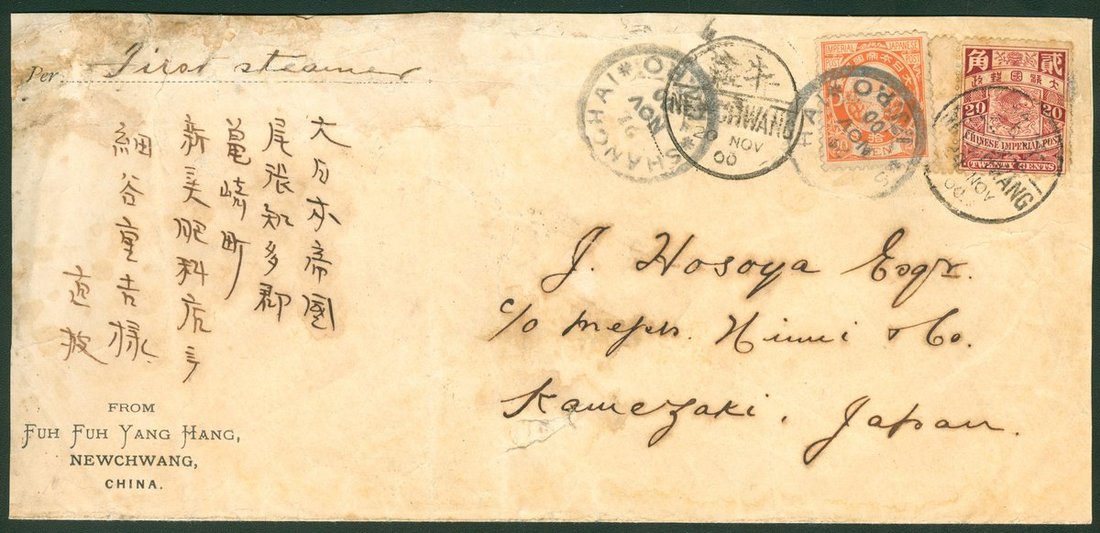 Per First steamer
大日本帝国
尾張知多郡
亀崎町
新美肥料店
細谷重吉様
J. Hosoya Esqr.
c/o Messrs. Niimi & Co.
Kamezaki. Japan.
FROM
FUH FUH YANG HANG,
NEWCHWANG,
CHINA.
SHANGHAI
NOV
牛莊
NEWCHWANG
NOV
00
IMPERIAL JAPANESE POST
大日本帝國郵便
SEN
貳
角
大清國郵政
20
20
CHINESE IMPERIAL POST
TWENTY CENTS
NOV
00